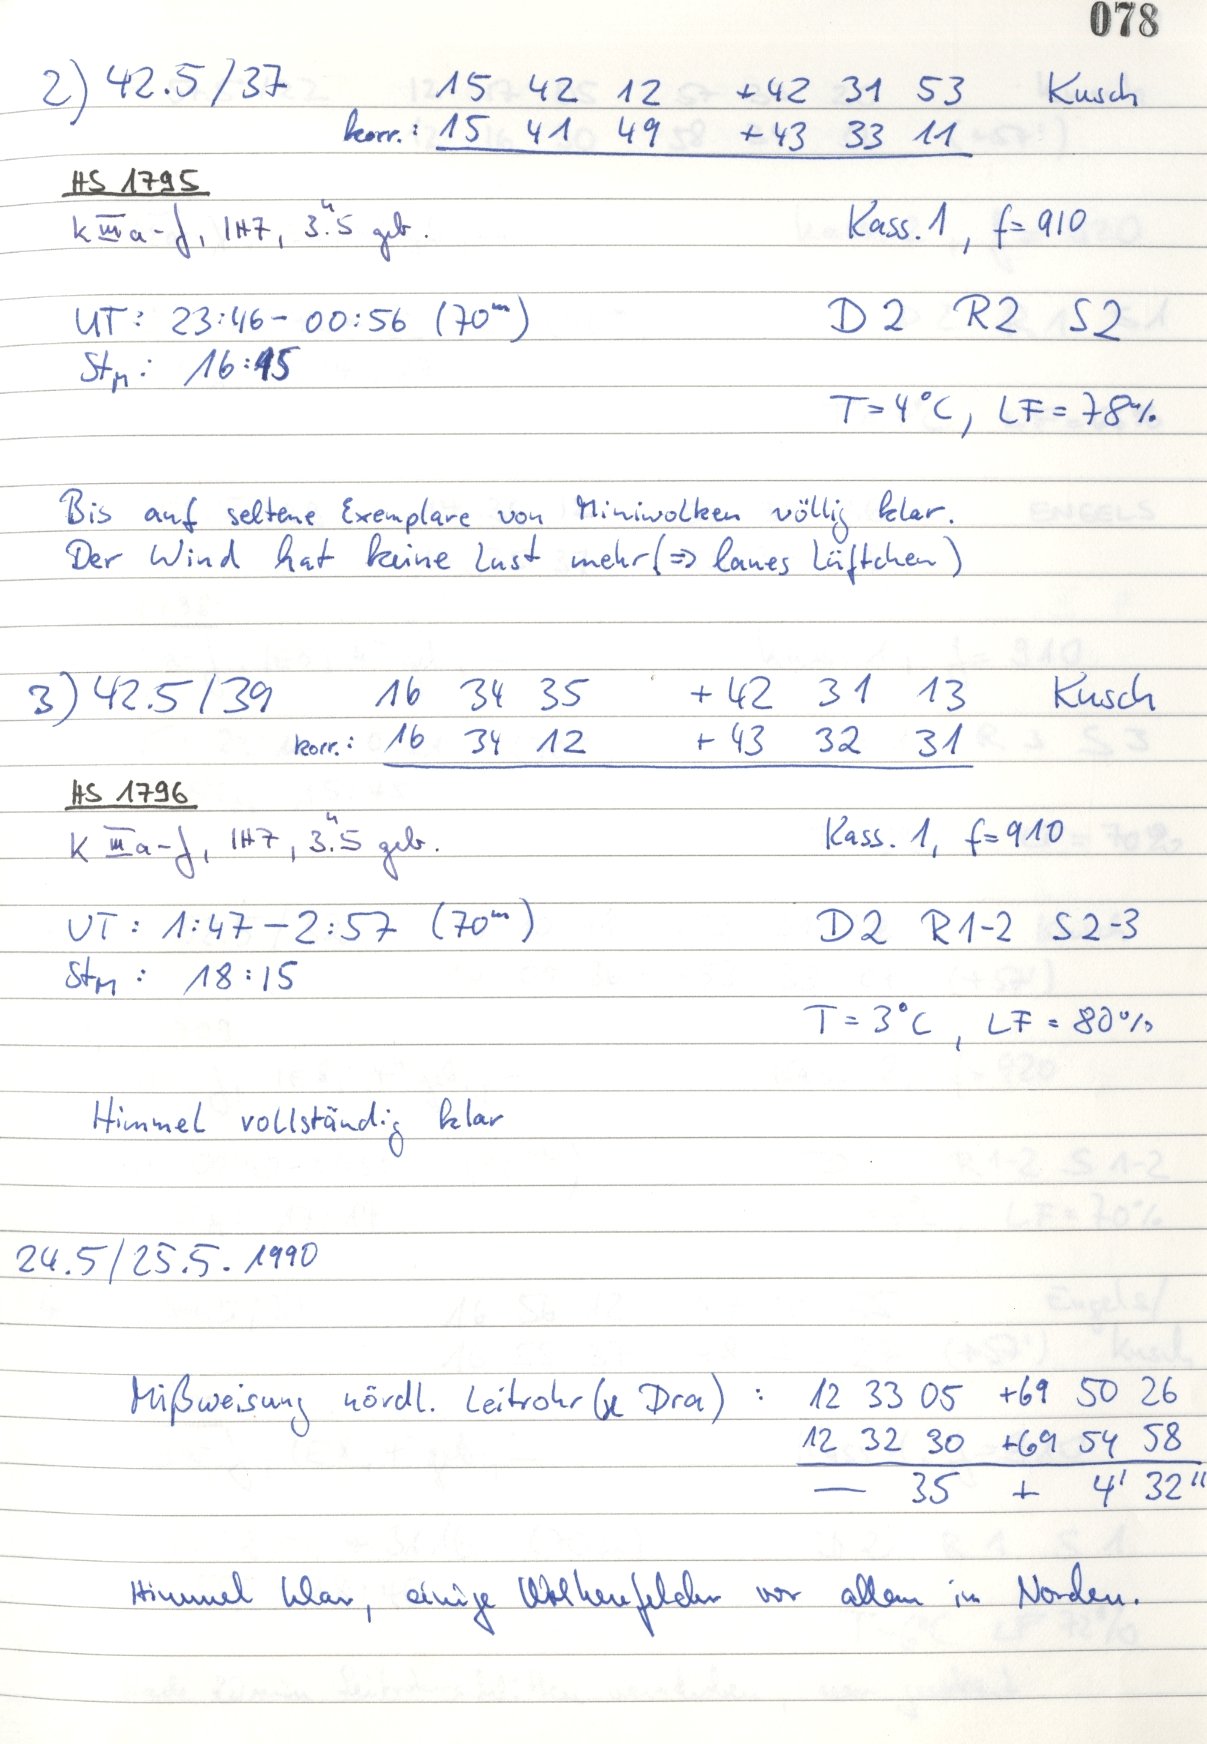 078
2) 42.5/37 15 42 12 +42 31 53 Kusch
korr.: 15 41 49 +43 33 11
HS 1795
K III a-J, IH7, 3.5 geb. Kass. 1, f=910
UT: 23:46-00:56 (70m) D2 R2 S2
StM: 16:15
T=4°C, LF=78%
Bis auf seltene Exemplare von Miniwolken völlig klar.
Der Wind hat keine Lust mehr (=> laues Lüftchen)
3) 42.5/39 16 34 35 +42 31 13 Kusch
korr.: 16 34 12 +43 32 31
HS 1796
K III a-J, IH7, 3.5 geb. Kass. 1, f=910
UT: 1:47-2:57 (70m) D2 R1-2 S2-3
StM: 18:15
T=3°C, LF=80%
Himmel vollständig klar
24.5/25.5.1990
Mißweisung nördl. Leitrohr (κ Dra): 12 33 05 +69 50 26
12 32 30 +69 54 58
— 35 + 4' 32"
Himmel klar, einige Wolkenfelder vor allem im Norden.